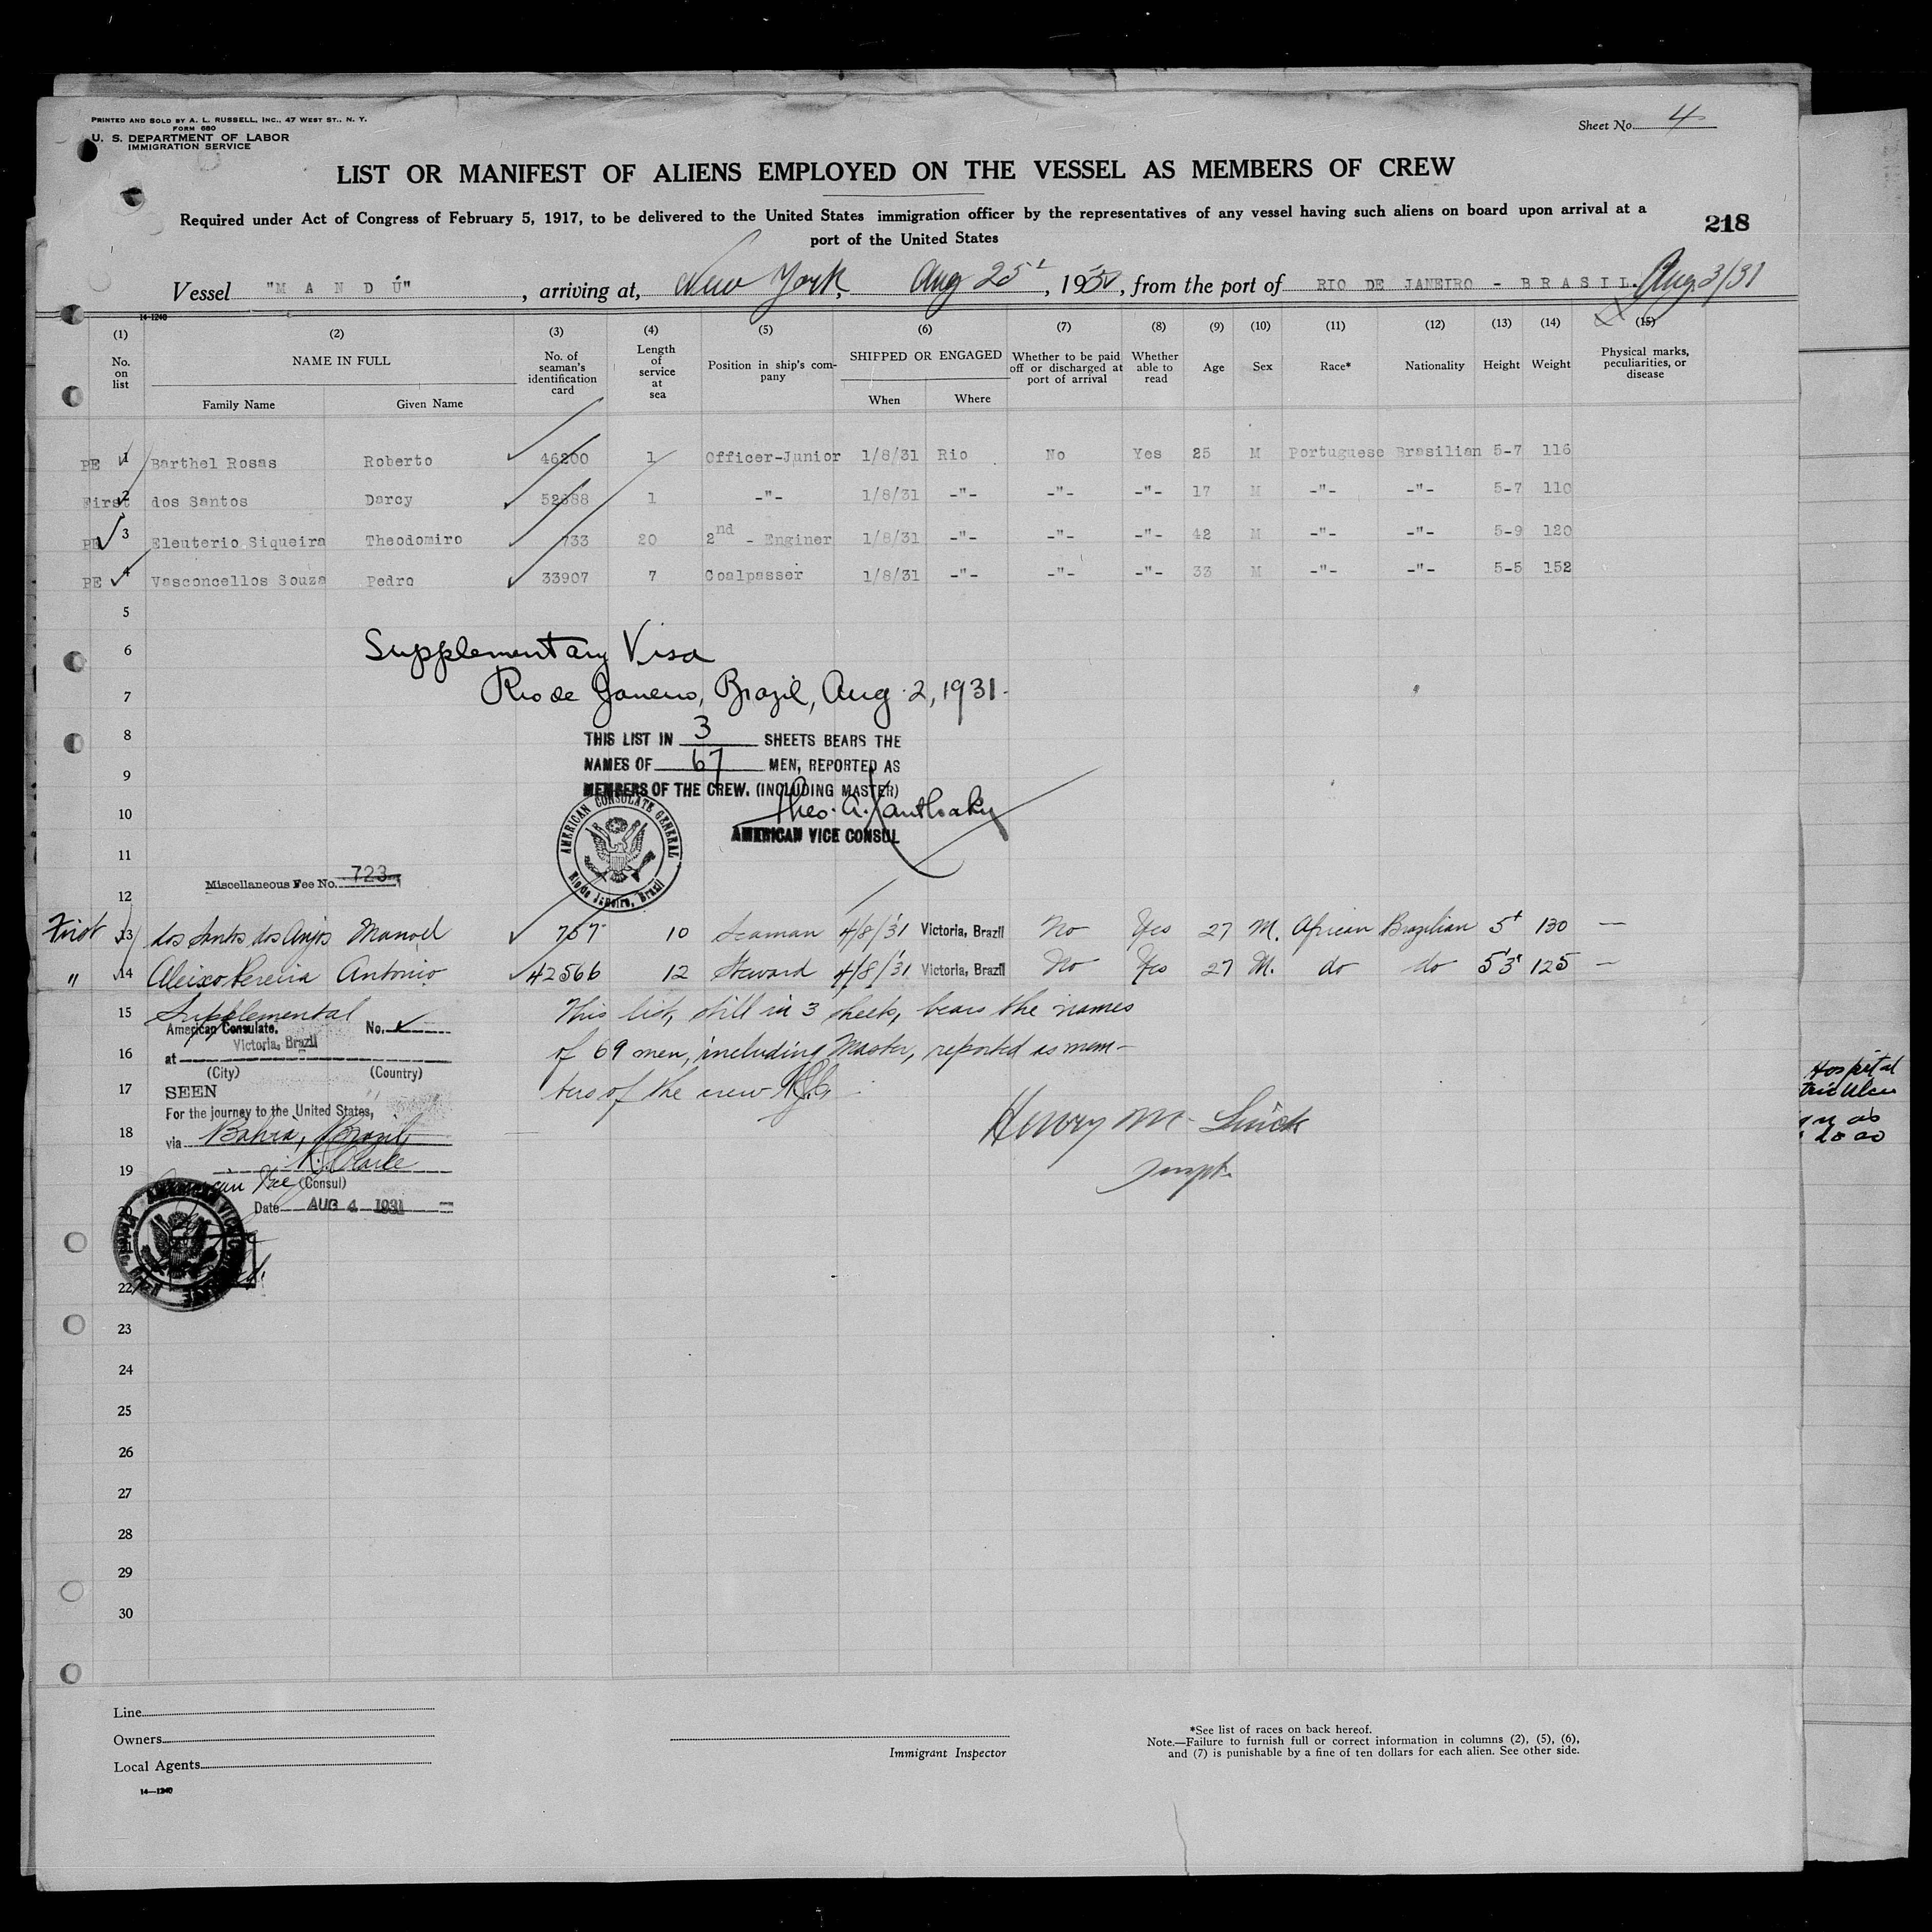 PRINTED AND SOLD BY A. L. RUSSELL, INC., 47 WEST ST., N. Y.
FORM 680
U. S. DEPARTMENT OF LABOR
IMMIGRATION SERVICE
Sheet No. 4
LIST OR MANIFEST OF ALIENS EMPLOYED ON THE VESSEL AS MEMBERS OF CREW
Required under Act of Congress of February 5, 1917, to be delivered to the United States immigration officer by the representatives of any vessel having such aliens on board upon arrival at a
port of the United States
218
Vessel "M A N D Ú", arriving at, New York, Aug 25, 193, from the port of RIO DE JANEIRO - BRASIL. Aug 3/31
14-1240
(1) (2) (3) (4) (5) (6) (7) (8) (9) (10) (11) (12) (13) (14) (15)
No. on list NAME IN FULL No. of seaman's identification card Length of service at sea Position in ship's company SHIPPED OR ENGAGED Whether to be paid off or discharged at port of arrival Whether able to read Age Sex Race* Nationality Height Weight Physical marks, peculiarities, or disease
Family Name Given Name When Where
PE 1 Barthel Rosas Roberto 46200 1 Officer-Junior 1/8/31 Rio No Yes 25 M Portuguese Brasilian 5-7 116
First 2 dos Santos Darcy 52688 1 -"- 1/8/31 -"- -"- -"- 17 M -"- -"- 5-7 110
PE 3 Eleuterio Siqueira Theodomiro 733 20 2nd - Enginer 1/8/31 -"- -"- -"- 42 M -"- -"- 5-9 120
PE 4 Vasconcellos Souza Pedro 33907 7 Coalpasser 1/8/31 -"- -"- -"- 33 M -"- -"- 5-5 152
5
6 Supplementary Visa
7 Rio de Janeiro, Brazil, Aug. 2, 1931.
8 THIS LIST IN 3 SHEETS BEARS THE
NAMES OF 67 MEN, REPORTED AS
9
MEMBERS OF THE CREW. (INCLUDING MASTER)
10
AMERICAN VICE CONSUL
AMERICAN CONSULATE GENERAL
Rio de Janeiro, Brazil
11
Miscellaneous Fee No. 723
12
First 13 dos Santos dos Anjos Manoel 757 10 Seaman 4/8/31 Victoria, Brazil No Yes 27 M. African Brazilian 130 —
" 14 Aleixo Pereira Antonio 42566 12 Steward 4/8/31 Victoria, Brazil No Yes 27 M. do do 5'3" 125 —
15 Supplemental This list, still in 3 sheets, bears the names
American Consulate, No.
Victoria, Brazil
16 at of 69 men, including Master, reported as mem-
(City) (Country)
17 SEEN bers of the crew
For the journey to the United States,
Henry M.
18 via Bahia, Brazil
19
(Consul)
Date AUG 4 1931
22
23
24
25
26
27
28
29
30
Line
Owners
Local Agents
14—1240
Immigrant Inspector
*See list of races on back hereof.
Note.—Failure to furnish full or correct information in columns (2), (5), (6),
and (7) is punishable by a fine of ten dollars for each alien. See other side.
Hospital